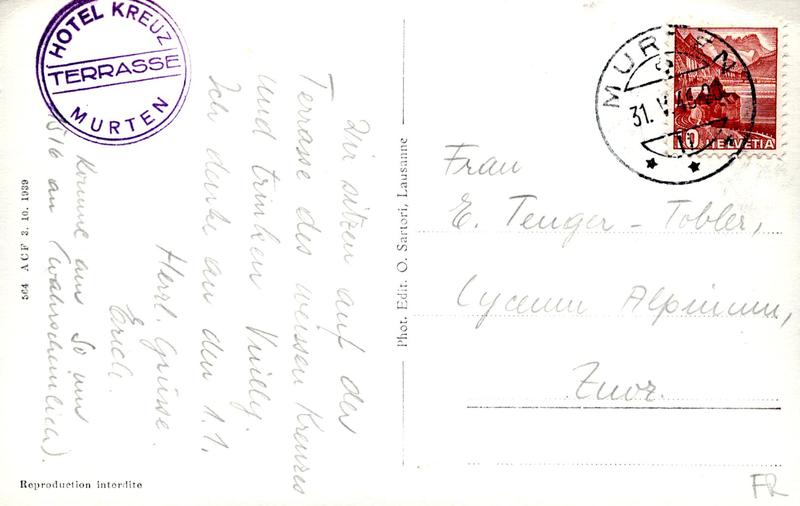 HOTEL KREUZ
TERRASSE
MURTEN
Wir sitzen auf der
Terrasse des weissen Kreuzes
und trinken Vuilly.
Ich denke an den 1.1.
Herzl. Grüsse.
Erich.
Komme am So um
1516 an (wahrscheinlich).
564 ACF 3. 10. 1939
Reproduction interdite
Phot. Edit. O. Sartori, Lausanne
MURTEN
31. V.
10 HELVETIA
Frau
E. Tenger - Tobler,
Lyceum Alpinum,
Zuoz.
FR